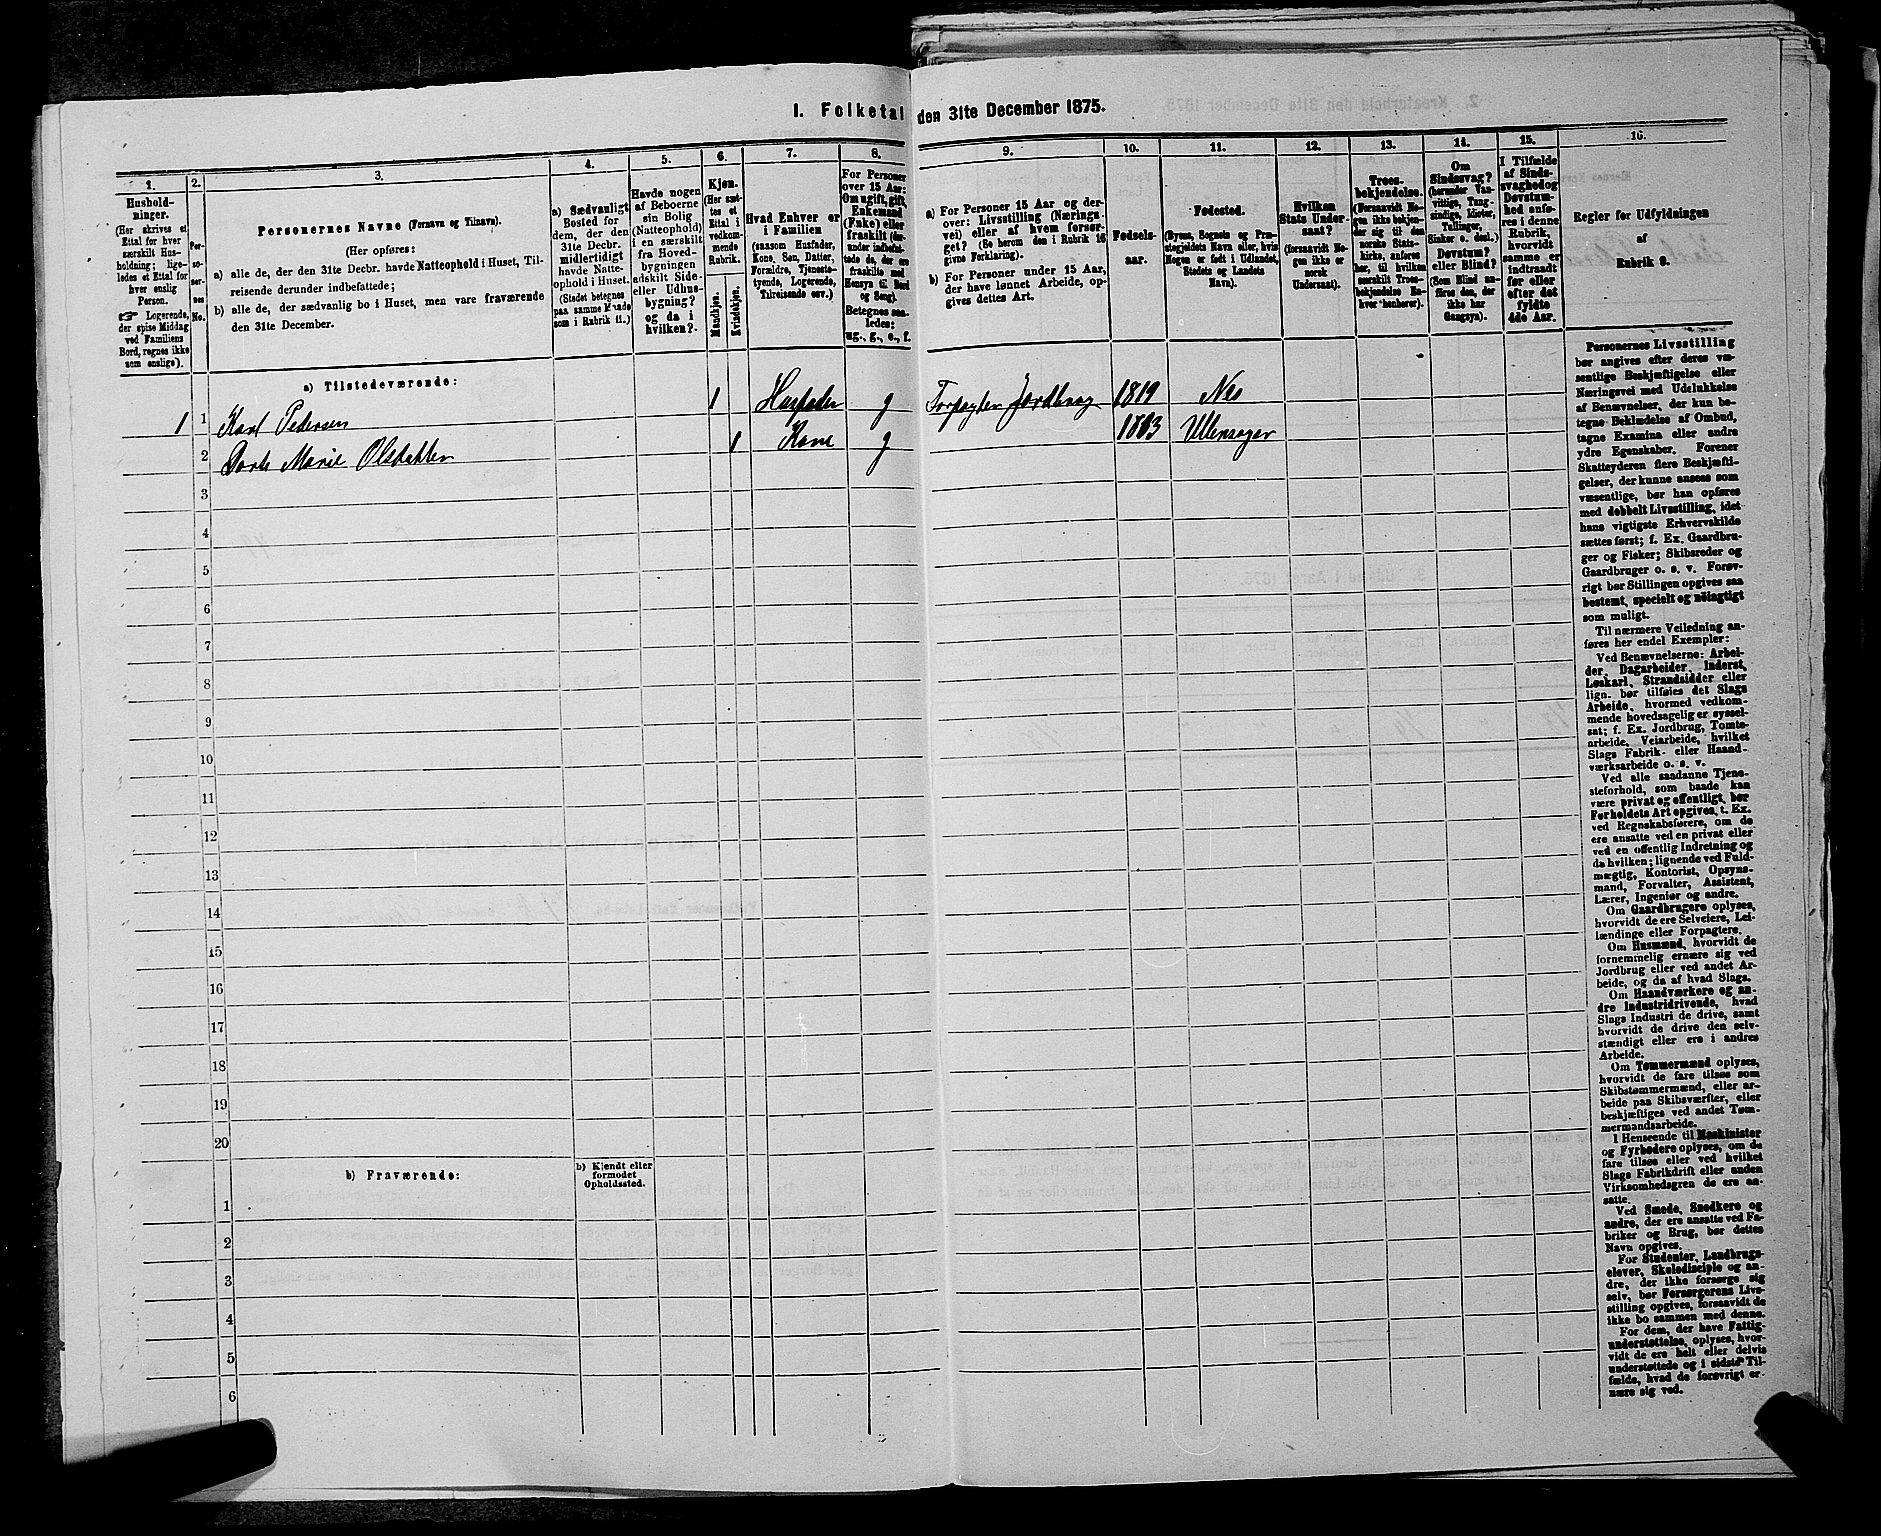 I. Folketal den 31te December 1875.
1.
Hushold-
ninger.
(Her skrives et
Ettal for hver
særskilt Hus-
holdning; lige-
ledes et Ettal for
hver enslig
Person.
☞ Logerende,
der spise Middag
ved Familiens
Bord, regnes ikke
som enslige).
2.
Per-
so-
ner-
nes
No.
3.
Personernes Navne (Fornavn og Tilnavn).
(Her opføres:
a) alle de, der den 31te Decbr. havde Natteophold i Huset, Til-
reisende derunder indbefattede;
b) alle de, der sædvanlig bo i Huset, men vare fraværende
den 31te December.
4.
a) Sædvanligt
Bosted for
dem, der den
31te Decbr.
midlertidigt
havde Natte-
ophold i Huset.
(Stedet betegnes
paa samme Maade
som i Rubrik 11.)
5.
Havde nogen
af Beboerne
sin Bolig
(Natteophold)
i en særskilt
fra Hoved-
bygningen
adskilt Side-
eller Udhus-
bygning?
og da i
hvilken?
6.
Kjøn.
(Her sæt-
tes et
Ettal i
vedkom-
mende
Rubrik.
Mandkjøn.
Kvindekjøn.
7.
Hvad Enhver er
i Familien
(saasom Husfader,
Kone, Søn, Datter,
Forældre, Tjeneste-
tyende, Logerende,
Tilreisende osv.)
8.
For Personer
over 15 Aar:
Om ugift, gift,
Enkemand
(Enke) eller
fraskilt (der-
under indbefat-
tede de, der ere
fraskilte med
Hensyn til Bord
og Seng).
Betegnes saa-
ledes:
ug., g., e., f.
9.
a) For Personer 15 Aar og der-
over: Livsstilling (Nærings-
vei) eller af hvem forsør-
get? (Se herom den i Rubrik 16
givne Forklaring).
b) For Personer under 15 Aar,
der have lønnet Arbeide, op-
gives dettes Art.
10.
Fødsels-
aar.
11.
Fødested.
(Byens, Sognets og Præ-
stegjeldets Navn eller, hvis
Nogen er født i Udlandet,
Stedets og Landets
Navn).
12.
Hvilken
Stats Under-
saat?
(forsaavidt No-
gen ikke er
norsk
Undersaat).
13.
Troes-
bekjendelse.
(Forsaavidt No-
gen ikke bekjen-
der sig til den
norske Stats-
kirke, anføres
her, til hvilken
særskilt Troes-
bekjendelse En-
hver henhører).
14.
Om
Sindssvag?
(herunder Van-
vittige, Tung-
sindige, Idioter,
Tullinger,
Sinker o. desl.)
Døvstum?
eller Blind?
(Som Blind an-
føres den, der
ikke har
Gangsyn).
15.
I Tilfælde
af Sinds-
svaghed og
Døvstum-
hed anfø-
res i denne
Rubrik,
hvorvidt
samme er
indtraadt
før eller
efter det
fyldte
4de Aar.
16.
Regler for Udfyldningen
af
Rubrik 9.
a) Tilstedeværende:
1 1 Karl Pedersen 1 Husfader g Forpagter Jordbrug 1819 Nes
2 Dorte Marie Olsdatter 1 Kone g Ullensager
3
4
5
6
7
8
9
10
11
12
13
14
15
16
17
18
19
20
b) Fraværende:
b) Kjendt eller
formodet
Opholdssted.
1
2
3
4
5
6
Personernes Livsstilling
bør angives efter deres væ-
sentlige Beskjæftigelse eller
Næringsvei med Udelukkelse
af Benævnelser, der kun be-
tegne Beklædelse af Ombud,
tagne Examina eller andre
ydre Egenskaber. Forener
Skatteyderen flere Beskjæfti-
gelser, der kunne ansees som
væsentlige, bør han opføres
med dobbelt Livsstilling, idet
hans vigtigste Erhvervskilde
sættes først; f. Ex. Gaardbru-
ger og Fisker; Skibsreder og
Gaardbruger o. s. v. Forøv-
rigt bør Stillingen opgives saa
bestemt, specielt og nøiagtigt
som muligt.
Til nærmere Veiledning an-
føres her endel Exempler:
Ved Benævnelserne: Arbei-
der, Dagarbeider, Inderst,
Løskarl, Strandsidder eller
lign. bør tilføies det Slags
Arbeide, hvormed vedkom-
mende hovedsagelig er syssel-
sat; f. Ex. Jordbrug, Tomte-
arbeide, Veiarbeide, hvilket
Slags Fabrik- eller Haand-
værksarbeide o. s. v.
Ved alle saadanne Tjene-
steforhold, som baade kan
være privat og offentligt, bør
Forholdets Art opgives, t. Ex.
ved Regnskabsførere, om de
ere ansatte ved en privat eller
ved en offentlig Indretning og
da hvilken; lignende ved Fuld-
mægtig, Kontorist, Opsyns-
mand, Forvalter, Assistent,
Lærer, Ingeniør og andre.
Om Gaardbrugere oplyses,
hvorvidt de ere Selveiere, Lei-
lændinge eller Forpagtere.
Om Husmænd, hvorvidt de
fornemmelig ernære sig ved
Jordbrug eller ved andet Ar-
beide, og da af hvad Slags.
Om Haandværkere og an-
dre Industridrivende, hvad
Slags Industri de drive, samt
hvorvidt de drive den selv-
stændigt eller ere i andres
Arbeide.
Om Tømmermænd oplyses,
hvorvidt de fare tilsøs som
Skibstømmermænd, eller ar-
beide paa Skibsværfter, eller
beskjæftiges ved andet Tøm-
mermandsarbeide.
I Henseende til Maskinister
og Fyrbødere oplyses, om de
fare tilsøs eller ved hvilket
Slags Fabrikdrift eller anden
Virksomhedsgren de ere an-
satte.
Ved Smede, Snedkere og
andre, der ere ansatte ved Fa-
briker og Brug, bør dettes
Navn opgives.
For Studenter, Landbrugs-
elever, Skoledisciple og an-
dre, der ikke forsørge sig
selv, bør Forsørgerens Livs-
stilling opgives, forsaavidt de
ikke bo sammen med denne.
For dem, der have Fattig-
understøttelse, oplyses, hvor-
vidt de ere helt eller delvis
understøttede og i sidste Til-
fælde, hvad de forøvrigt er-
nære sig ved.